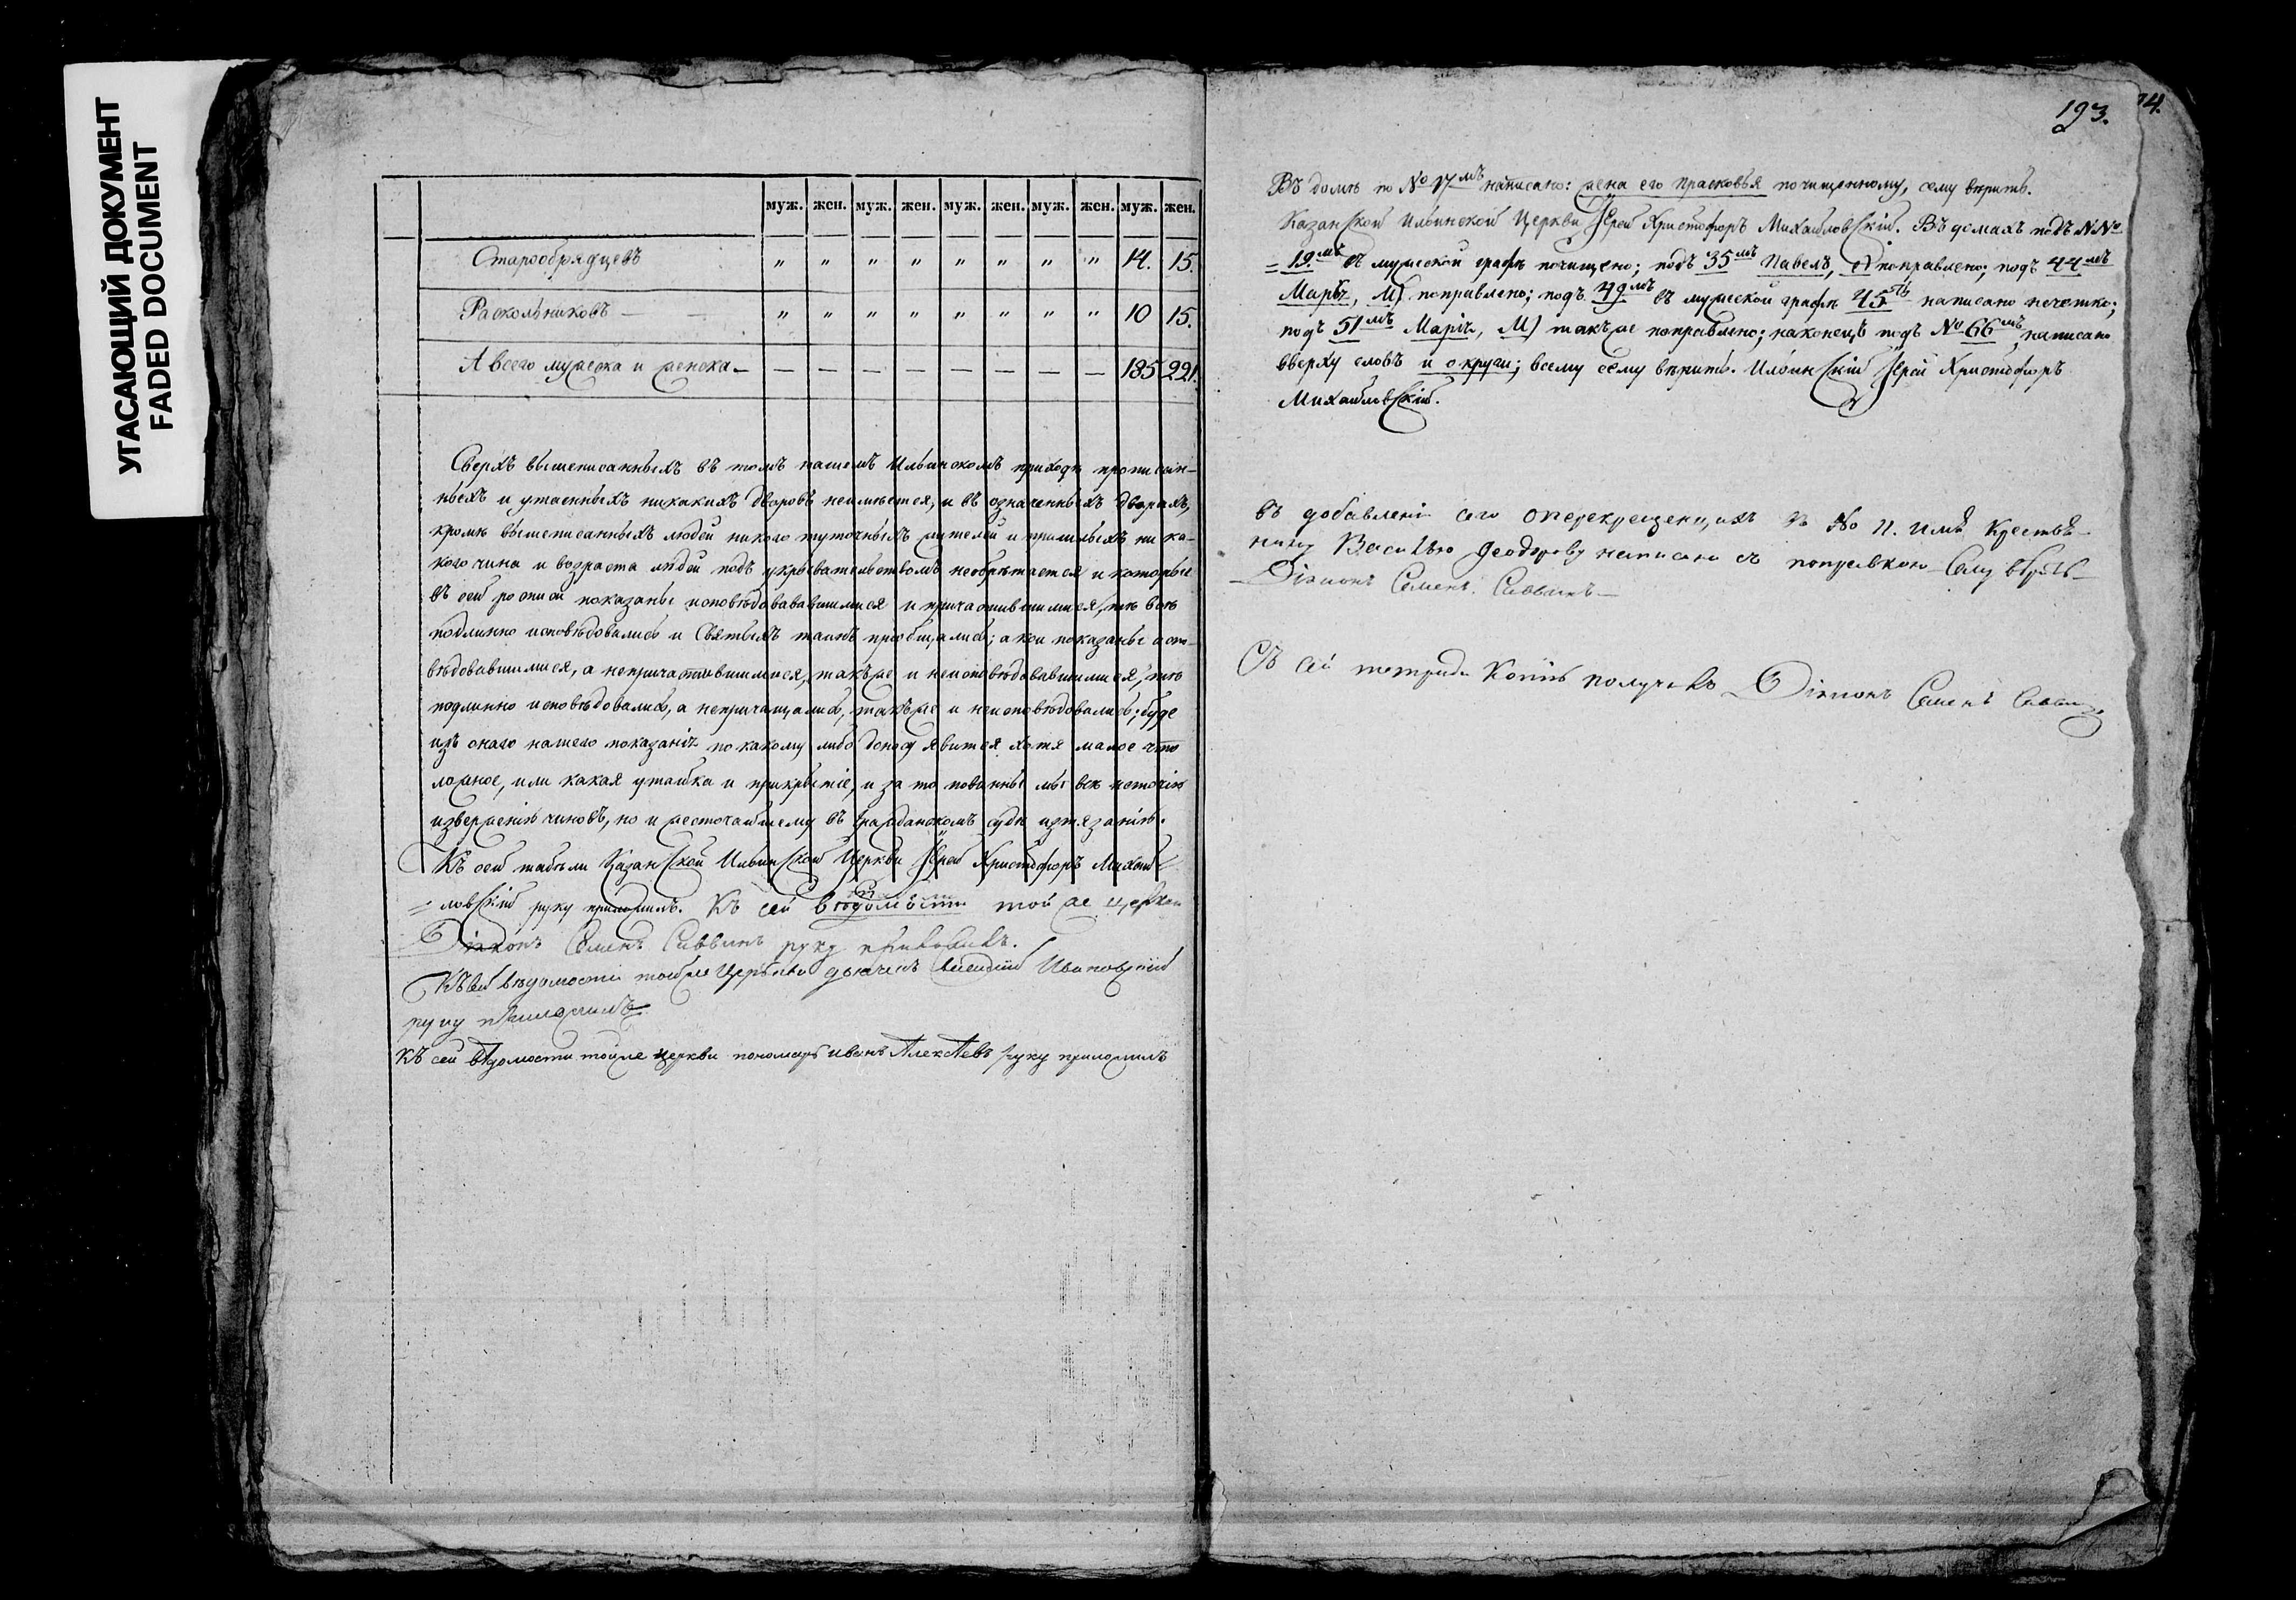 УГАСАЮЩИЙ ДОКУМЕНТ
FADED DOCUMENT
муж. жен. муж. жен. муж. жен. муж. жен. муж. жен.
Старообрядцевъ " " " " " " " " 14. 15.
Раскольниковъ — — " " " " " " " " 10 15.
А всего мужеска и женска — — — — — — — — — 185 221.
Сверхъ вышеписанныхъ въ томъ нашемъ Ильинскомъ приходѣ прописан-
ныхъ и утаенныхъ никакихъ дворовъ неимѣется, и въ означенныхъ дворахъ,
кромѣ вышеписанныхъ людей никого туточныхъ жителей и пришлыхъ ни ка-
кого чина и возраста людей подъ укрывательствомъ необрѣтается и которые
въ сей росписи показаны исповѣдовававшимися и причастившимися, тѣ всѣ
подлинно исповѣдовались и Святыхъ таинъ приобщались; а кои показаны испо-
вѣдовавшимися, а непричастившимися, такъже и неисповѣдовавшимися, тѣ
подлинно исповѣдовались, а непричащались, такъже и неисповѣдовались; буде
изъ онаго нашего показанія по какому либо доносу явится хотя малое что
ложное, или какая утайка и прикрытіе, и за то повинны мы всѣ неточію
изверженію чиновъ, но и жесточайшему въ гражданскомъ судѣ изтязанію.
Къ сей табѣли Казанской Ильинской Церкви Іерей Христофоръ Михай-
= ловскій руку приложилъ. Къ сей вѣдомости той же церкви
Діаконъ Семенъ Саввинъ руку приложилъ.
Къ сей вѣдомости тойже Церькви дьячекъ Ивановскій
руку приложилъ
Къ сей вѣдомости тойже церкви пономарь Иванъ Алексѣевъ руку приложилъ
193. 14.
Въ домѣ по № 17мъ написано: жена его Прасковья почищенному, сему вѣрить.
Казанской Ильинской Церкви Іерей Христофоръ Михайловскій. Въ домахъ подъ N№
= 19.мъ въ мужеской графѣ почищено; подъ 35мъ Павелъ, поправлено; подъ 44мъ
Марѳа, М) поправлено; подъ 49мъ въ мужеской графѣ 45ть написано нечетко;
подъ 51мъ Марія, М) такъже поправлено; наконецъ подъ № 66мъ написано
вверху словъ и округи; всему сему вѣрить. Ильинскій Іерей Христофоръ
Михайловскій.
въ добавленіи сего въ № 11. имѣ крестья-
нину Василью Ѳеодорову написано съ поправкою — Сему вѣрить —
Діаконъ Семенъ Саввинъ —
Съ сей тетради Копію получилъ Діаконъ Семенъ Саввинъ